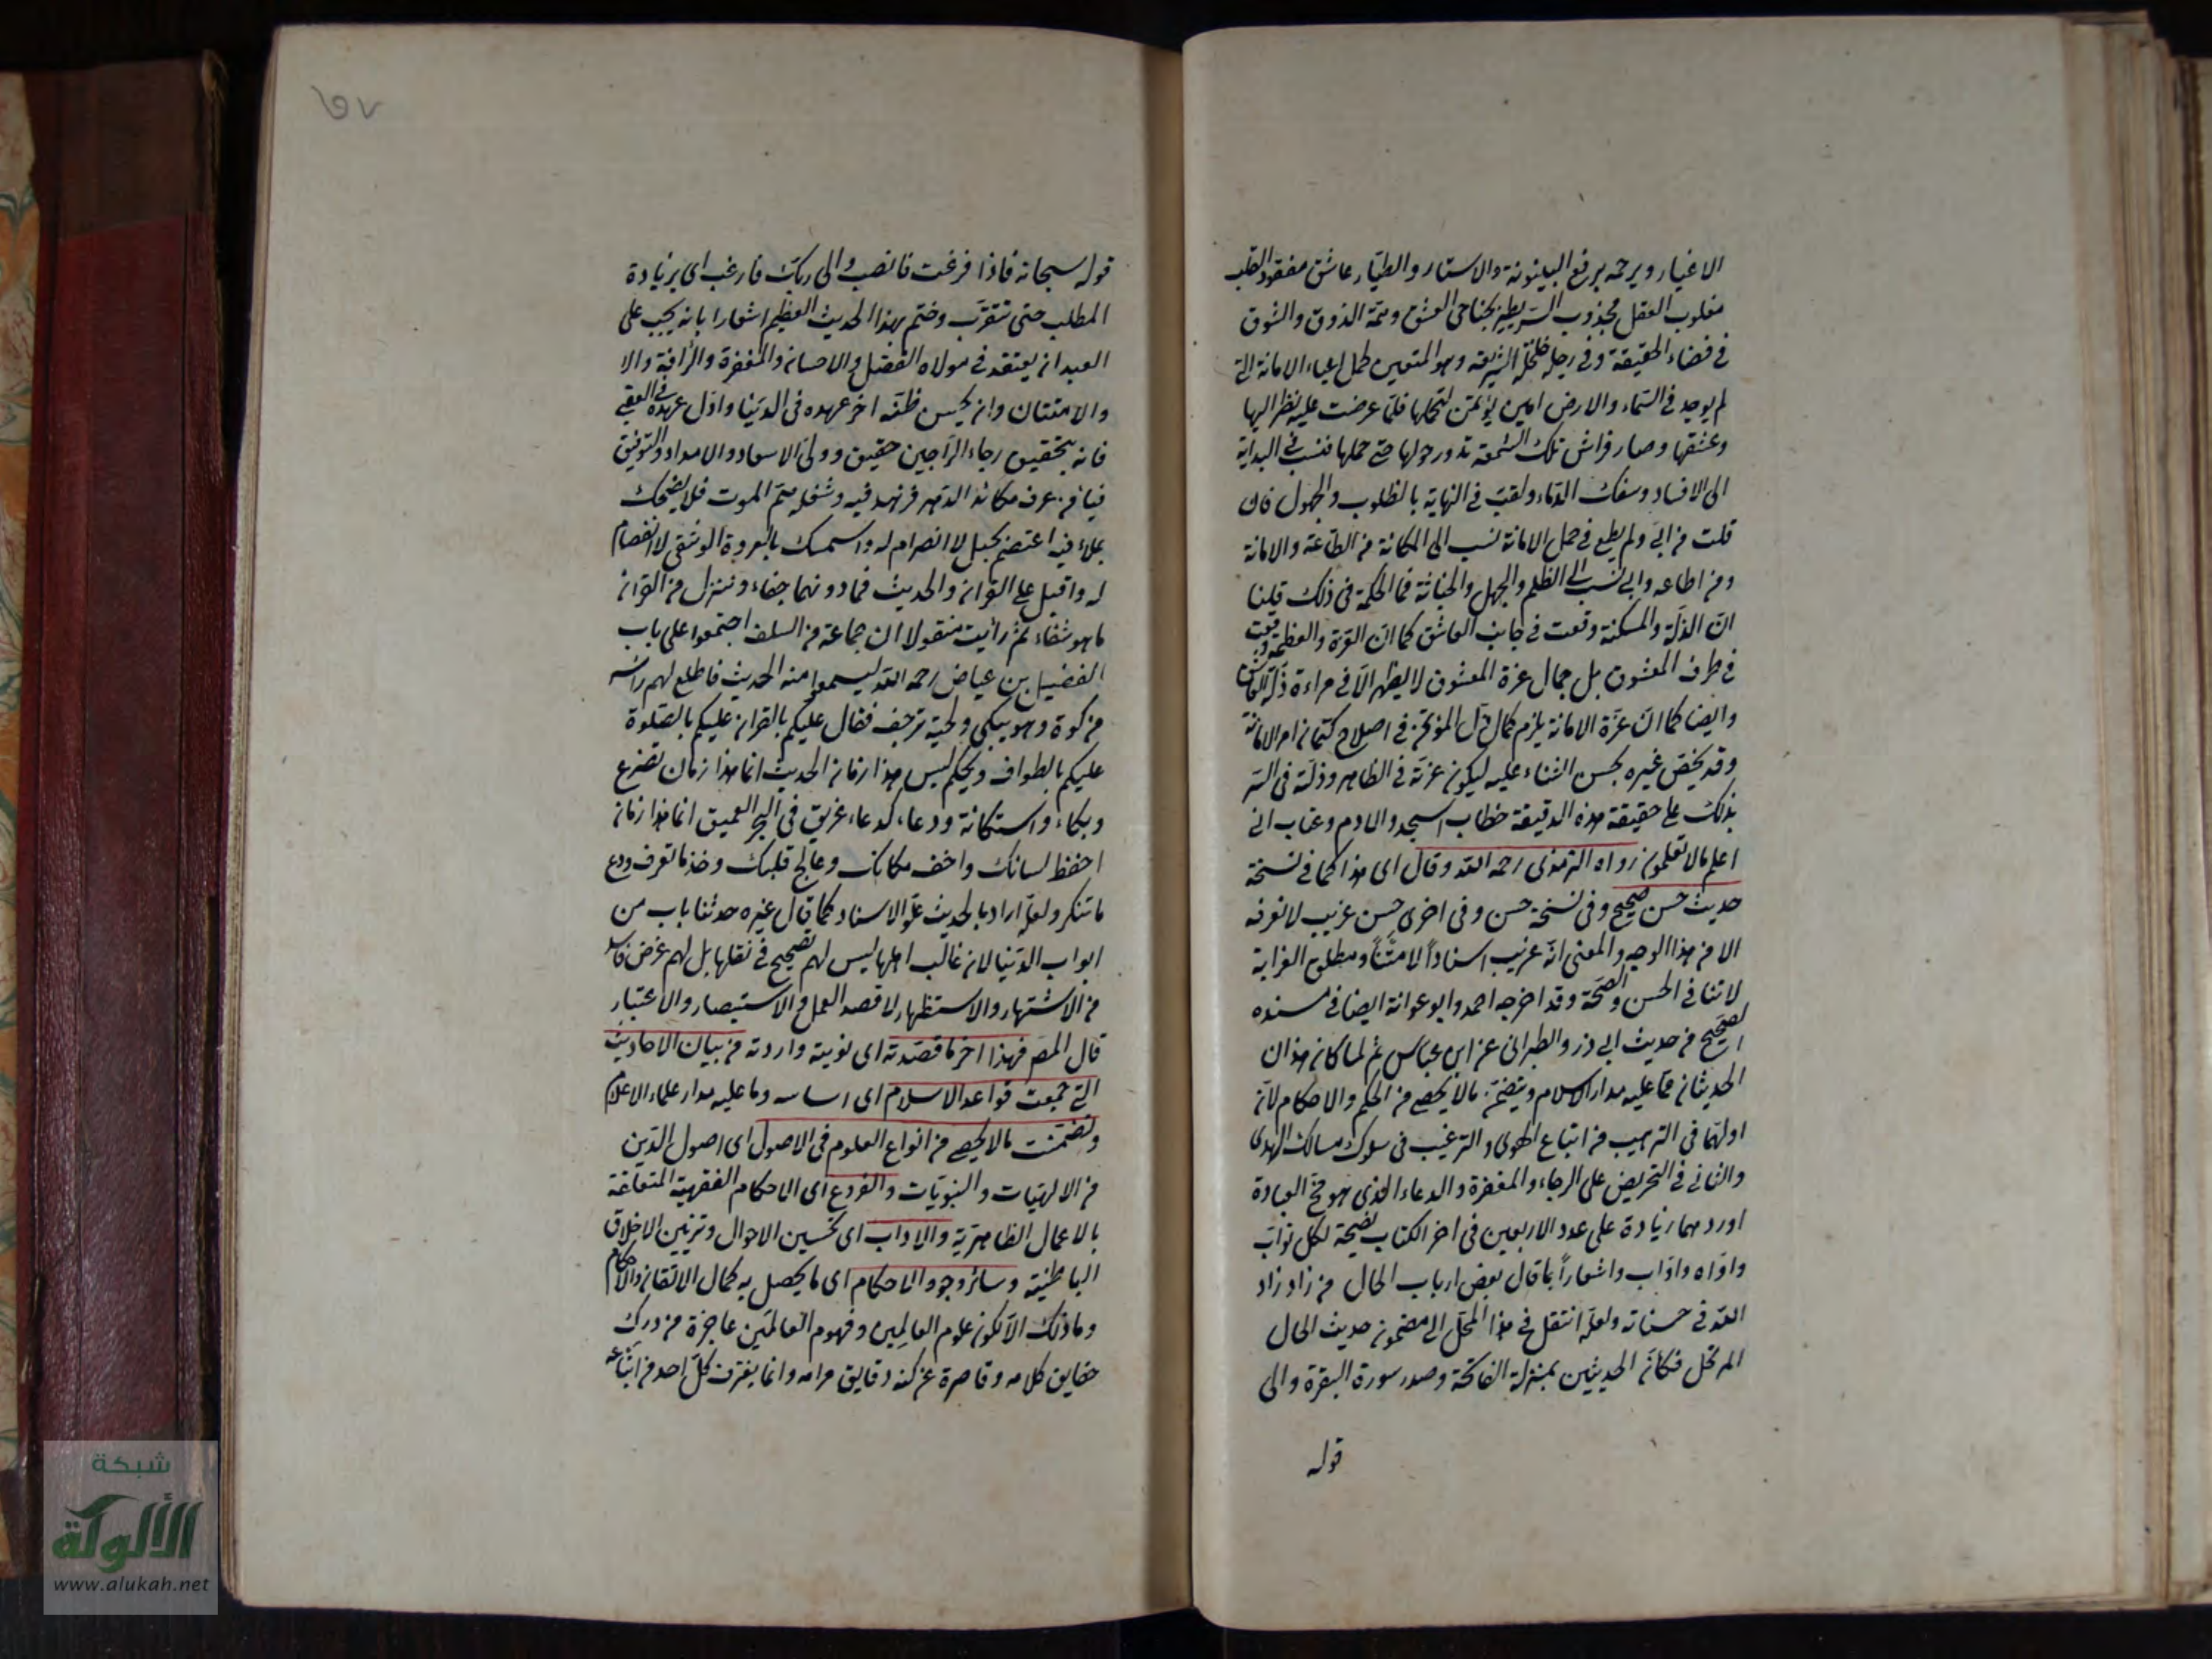 الاغيار ويرحمه برفع البينونة والاستار والطيار عاشق مفقود القلب
مغلوب العقل مجذوب السر يطير بجناحي العشق وهمة الذوق والشوق
في فضاء الحقيقة وفي رجله خلخال الشريعة وهو المتعين لحمل اعباء الامانة التي
لم يوجد في السماء والارض امين يؤتمن لتحملها فلما عرضت عليه نظر اليها
وعشقها وصار فراش تلك الشمعة تدور حولها حتى حملها فنسب في البداية
الى الافساد وسفك الدماء ولقب في النهاية بالظلوم والجهول فان
قلت من ابى ولم يطع في حمل الامانة نسب الى المكانة من الطاعة والامانة
ومن اطاعه وابى نسب الى الظلم والجهل والخيانة فما الحكمة في ذلك قلنا
ان الذلة والمسكنة وقعت في جانب العاشق كما ان العزة والعظمة وقعت
في طرف المعشوق بل جمال عزة المعشوق لا يظهر الا في مراءة ذلة العاشق
وايضا كما ان عزة الامانة يلزم كمال ذل المؤتمن في اصلاح كتمان امر الامانة
وقد يخص غيره بحسن الثناء عليه ليكون عزته في الظاهر وذلة في السر
بذلك على حقيقة هذه الدقيقة خطاب اسجدوا لادم وعتاب اني
اعلم مالا تعلمون رواه الترمذي رحمه الله وقال اي هذا كما في نسخة
حديث حسن صحيح وفي نسخة حسن وفي اخرى حسن غريب لا نعرفه
الا من هذا الوجه والمعنى انه غريب اسناداً لا متناً ومطلق الغرابة
لا تنافي الحسن والصحة وقد اخرجه احمد وابو عوانة ايضا في مسنده
الصحيح من حديث ابي ذر والطبراني عن ابن عباس ثم لما كان هذان
الحديثان مما عليه مدار الاسلام ويتضمن مالا يحصى من الحكم والاحكام لان
اولهما في الترهيب من اتباع الهوى والترغيب في سلوك مسالك الهدى
والثاني في التحريض على الرجاء والمغفرة والدعاء الذي هو مخ العبادة
اوردهما زيادة على عدد الاربعين في اخر الكتاب نصيحة لكل تواب
واواه واواب واشعاراً بما قال بعض ارباب الحال من زاد زاد
الله في حسناته ولعله انتقل في هذا المحل الى مضمون حديث الحال
المرتحل فكان الحديثين بمنزلة الفاتحة وصدر سورة البقرة والى
قوله
قوله سبحانه فاذا فرغت فانصب والى ربك فارغب اي بزيادة
المطلب حتى تتقرب وختم بهذا الحديث العظيم اشعارا بانه يجب على
العبد ان يعتقد في مولاه الفضل والاحسان والمغفرة والرافة والا
والامتنان وان يحسن ظنه اخر عهده في الدنيا واول عهده في العقبى
فانه بتحقيق رجاء الراجين حقيق وولي الاسعاد والامداد والتوفيق
فيا من عرف مكائد الدهر فزهد فيه وشغله هم الموت فلا يضحك
بملاء فيه اعتصم بحبل لا انصرام له واستمسك بالعروة الوثقى لا انفصام
له واقبل على القران والحديث فما دونهما جفاء وننزل من القران
ما هو شفاء ثم رأيت منقولا ان جماعة من السلف اجتمعوا على باب
الفضيل بن عياض رحمه الله ليسمعوا منه الحديث فاطلع لهم راسه
من كوة وهو يبكي ولحيته ترجف فقال عليكم بالقران عليكم بالصلوة
عليكم بالطواف ويحكم ليس هذا زمان الحديث انما هذا زمان تضرع
وبكاء واستكانة ودعاء كدعاء غريق في البحر العميق انما هذا زمان
احفظ لسانك واخف مكانك وعالج قلبك وخذ ما تعرف ودع
ما تنكر ولعله اراد بالحديث علو الاسناد كما قال غيره حدثنا باب من
ابواب الدنيا لان غالب اهلها ليس لهم تصحيح في نقلها بل لهم غرض فاسد
من الاشتهار والاستظهار لا قصد العمل والاستبصار والاعتبار
قال المص فهذا اخر ما قصدته اي نويته واردته من بيان الاحاديث
التي جمعت قواعد الاسلام اي اساسه وما عليه مدار علماء الاعلام
وتضمنت مالا يحصى من انواع العلوم في الاصول اي اصول الدين
من الالهيات والنبويات والفروع اي الاحكام الفقهية المتعلقة
بالاعمال الظاهرية والاداب اي تحسين الاحوال وتزيين الاخلاق
الباطنية وسائر وجوه الاحكام اي ما يحصل به كمال الاتقان والاحكام
وما ذلك الا لكون علوم العالمين وفهوم العالمين عاجزة من درك
حقايق كلامه وقاصرة عن كنه دقايق مرامه وانما يغترف كل احد من اتباعه
شبكة
الألوكة
www.alukah.net